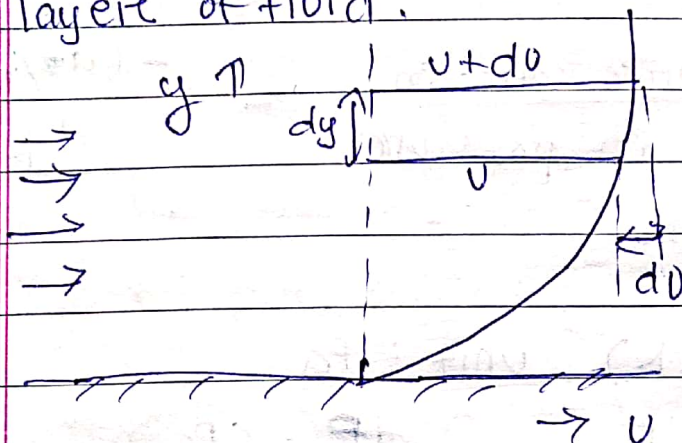 layers of fluid.
y ↑
u+du
dy
u
du
→ u